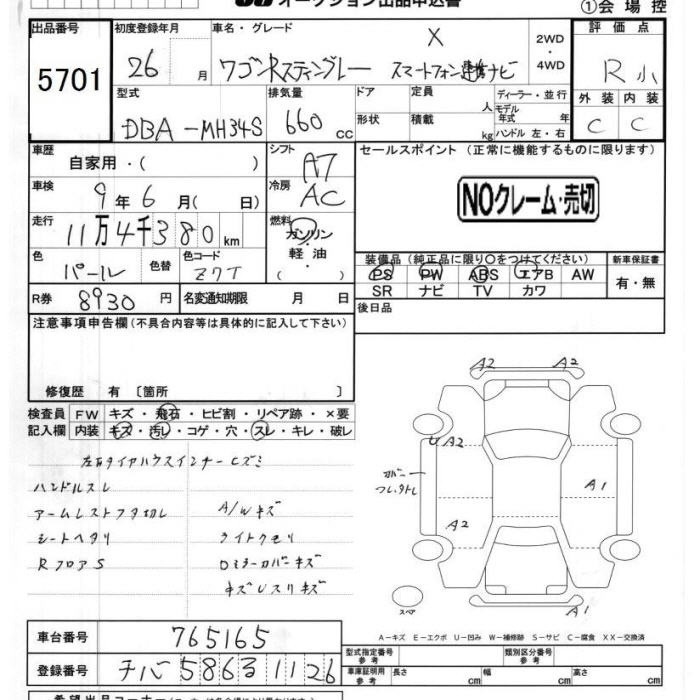 オークション出品申込書 ①会場控
出品番号 初度登録年月 車名・グレード 評価点
5701 26 月 ワゴンRスティングレー X スマートフォン連携ナビ 2WD・4WD R小
型式 排気量 ドア 定員 人 ディーラー・並行 外装 内装
DBA-MH34S 660 cc 形状 積載 kg モデル年式 年 ハンドル 左・右 C C
車歴 自家用・( ) シフト A7 セールスポイント (正常に機能するものに限ります)
車検 9年6月( 日) 冷房 AC NOクレーム・売切
走行 11万4千380km 燃料 ガソリン 軽油 ( )
色 パール 色替 色コード Z7T 装備品(純正品に限り○をつけてください) 新車保証書
PS PW ABS エアB AW 有・無
SR ナビ TV カワ
R券 8930円 名変通知期限 月 日 後日品
注意事項申告欄(不具合内容等は具体的に記入して下さい)
修復歴 有 〔箇所 〕
検査員 FW キズ・飛石・ヒビ割・リペア跡・×要
記入欄 内装 キズ・汚レ・コゲ・穴・スレ・キレ・破レ
A2 A2
左右タイヤハウスインナーヒズミ
UA2
カバー
ツレ、タトレ
A1
ハンドルスレ
アームレストフタ切レ A/Wキズ
A2
シートヘタリ ライトクモリ
RフロアS Dミラーカバーキズ
キズUスリキズ
スペア A1
A-キズ E-エクボ U-凹み W-補修跡 S-サビ C-腐食 XX-交換済
車台番号 765165
型式指定番号 参考 類別区分番号 参考
登録番号 チバ 5863 11 26
車庫証明用 参考 長さ cm 幅 cm 高さ cm